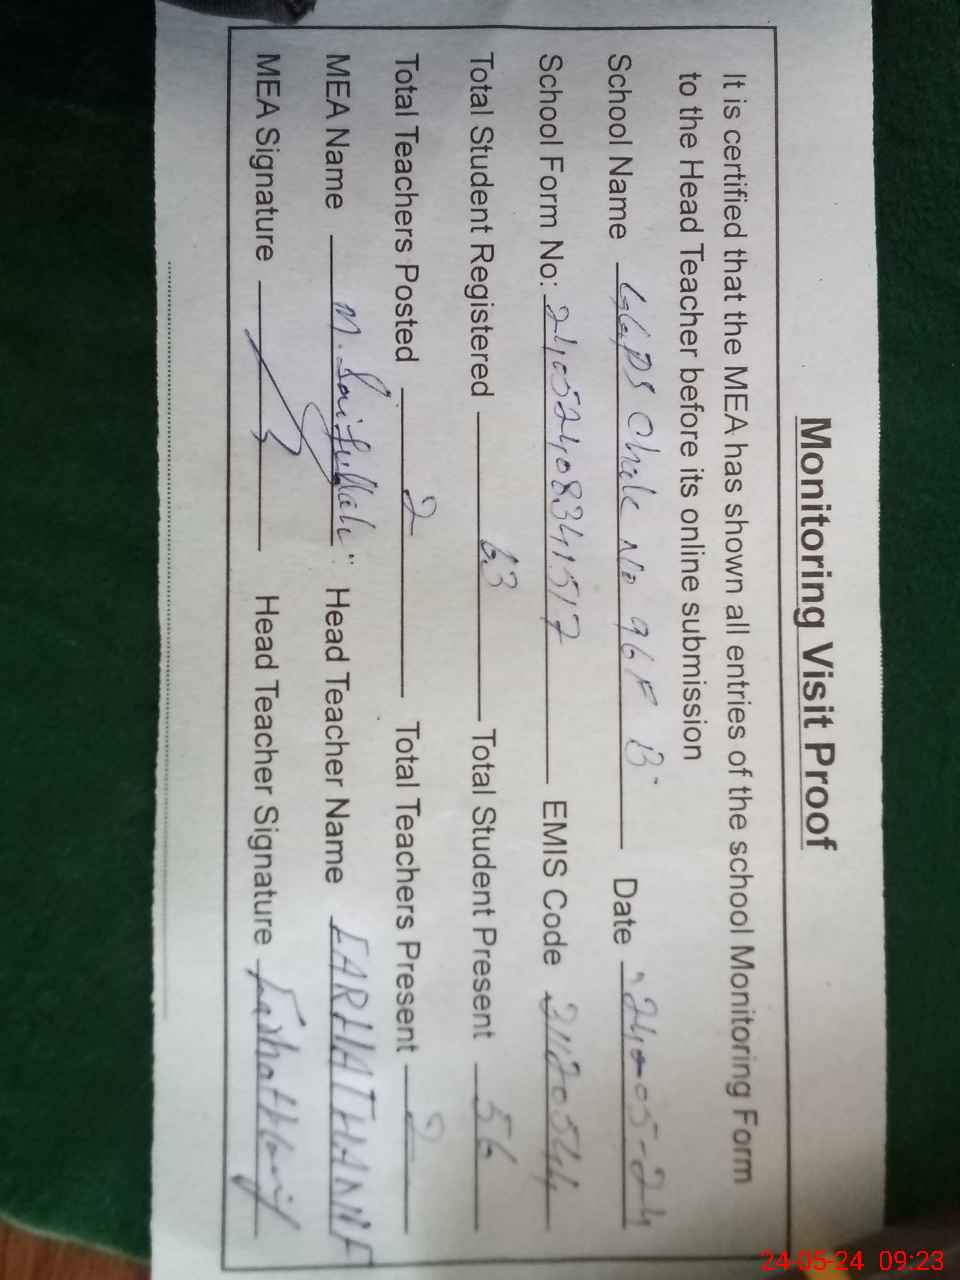 Monitoring Visit Proof
It is certified that the MEA has shown all entries of the school Monitoring Form
to the Head Teacher before its online submission
School Name GGPS Chak No 96 F B Date 24-05-24
School Form No: 24052408341517 EMIS Code 31120544
Total Student Registered 63 Total Student Present 56
Total Teachers Posted 2 Total Teachers Present 2
MEA Name M. Saifullah Head Teacher Name FARHAT HANIF
MEA Signature Head Teacher Signature Farhat Hanif
24-05-24 09:23